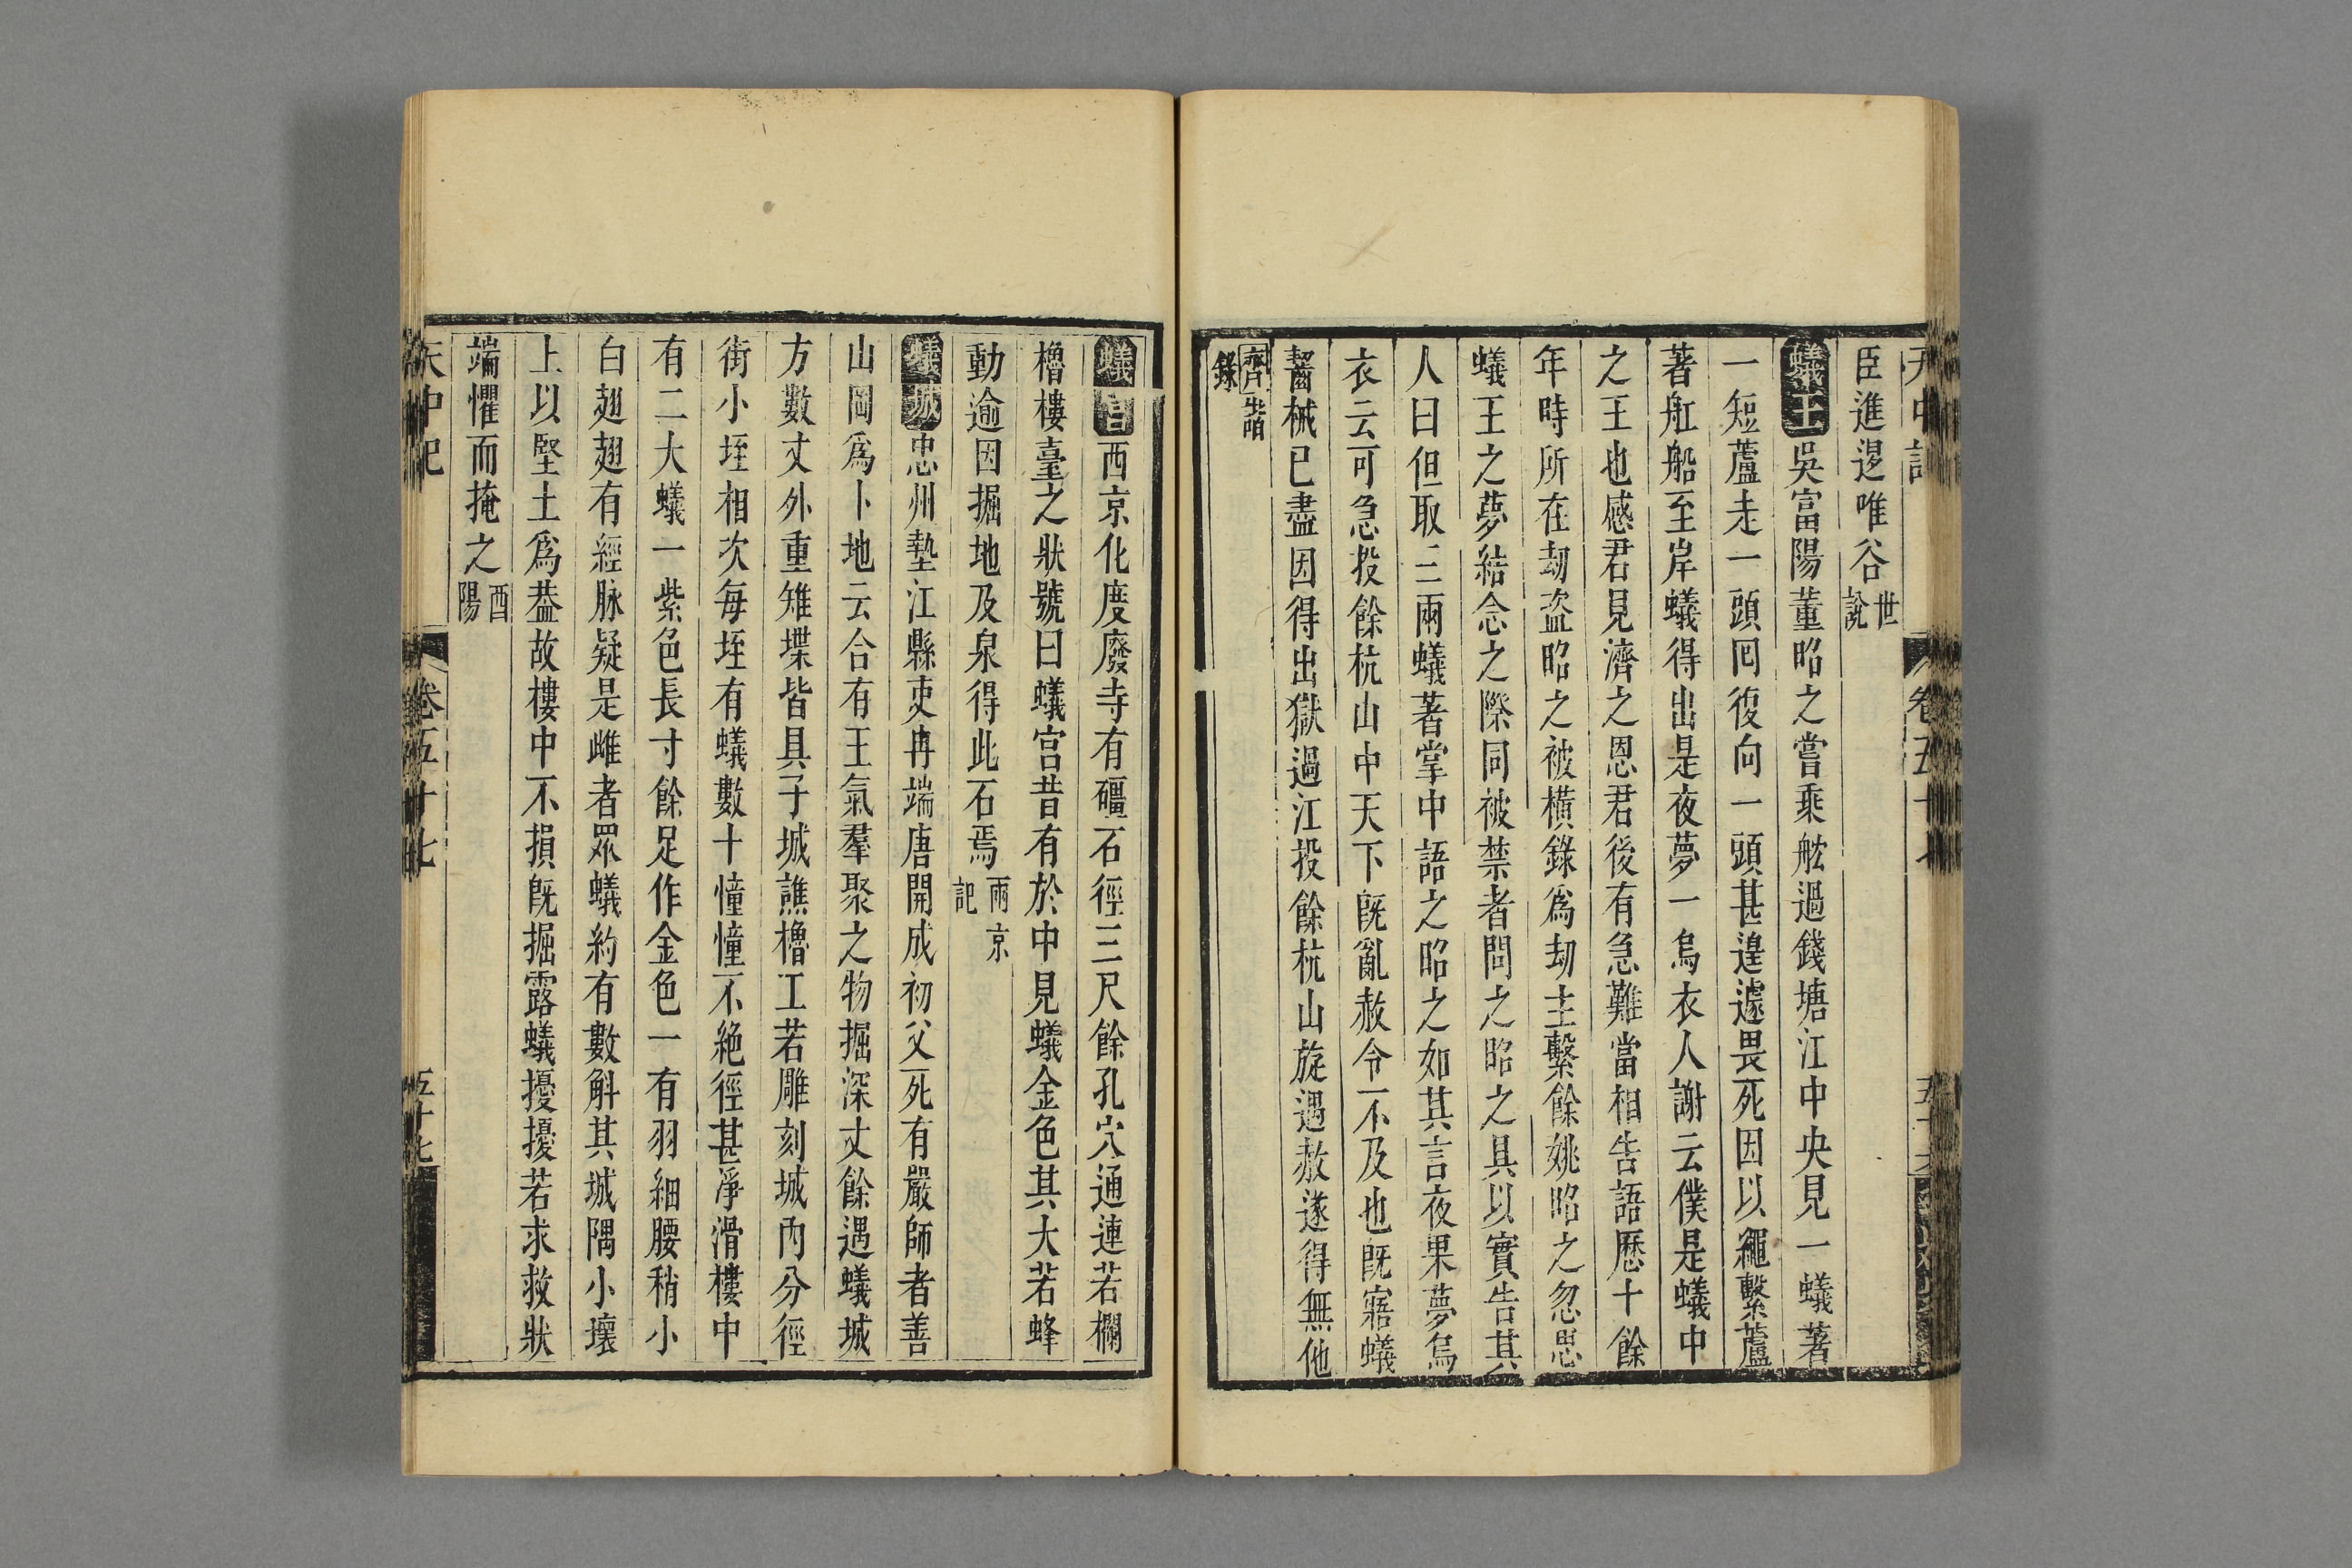 臣進退唯谷世說
蟻王吳富陽董昭之嘗乗舩過錢塘江中央見一蟻著
一短蘆走一頭囘復向一頭甚遑遽畏死因以繩繫蘆
著舡船至岸蟻得出是夜夢一烏衣人謝云僕是蟻中
之王也感君見濟之恩君後有急難當相告語歷十餘
年時所在劫盗昭之被橫錄爲劫主繫餘姚昭之忽思
蟻王之夢結念之際同被禁者問之昭之具以實告其
人曰但取三兩蟻著掌中語之昭之如其言夜果夢烏
衣云可急投餘杭山中天下旣亂赦令不及也旣寤蟻
齧械已盡因得出獄過江投餘杭山旋遇赦遂得無他
齊諧錄
蟻宫西京化度廢寺有礓石徑三尺餘孔穴通連若欄
櫓樓臺之狀號曰蟻宫昔有於中見蟻金色其大若蜂
動逾因掘地及泉得此石焉兩京記
蟻城忠州墊江縣吏冉端唐開成初父死有嚴師者善
山岡爲卜地云合有王氣羣聚之物掘深丈餘遇蟻城
方數丈外重雉堞皆具子城譙櫓工若雕刻城內分徑
街小垤相次每垤有蟻數十憧憧不絶徑甚淨滑樓中
有二大蟻一紫色長寸餘足作金色一有羽細腰稍小
白翅翅有經脉疑是雌者眾蟻約有數斛其城隅小壞
上以堅土爲葢故樓中不損旣掘露蟻擾擾若求救狀
端懼而掩之酉陽
天中記 卷五十七 五十七